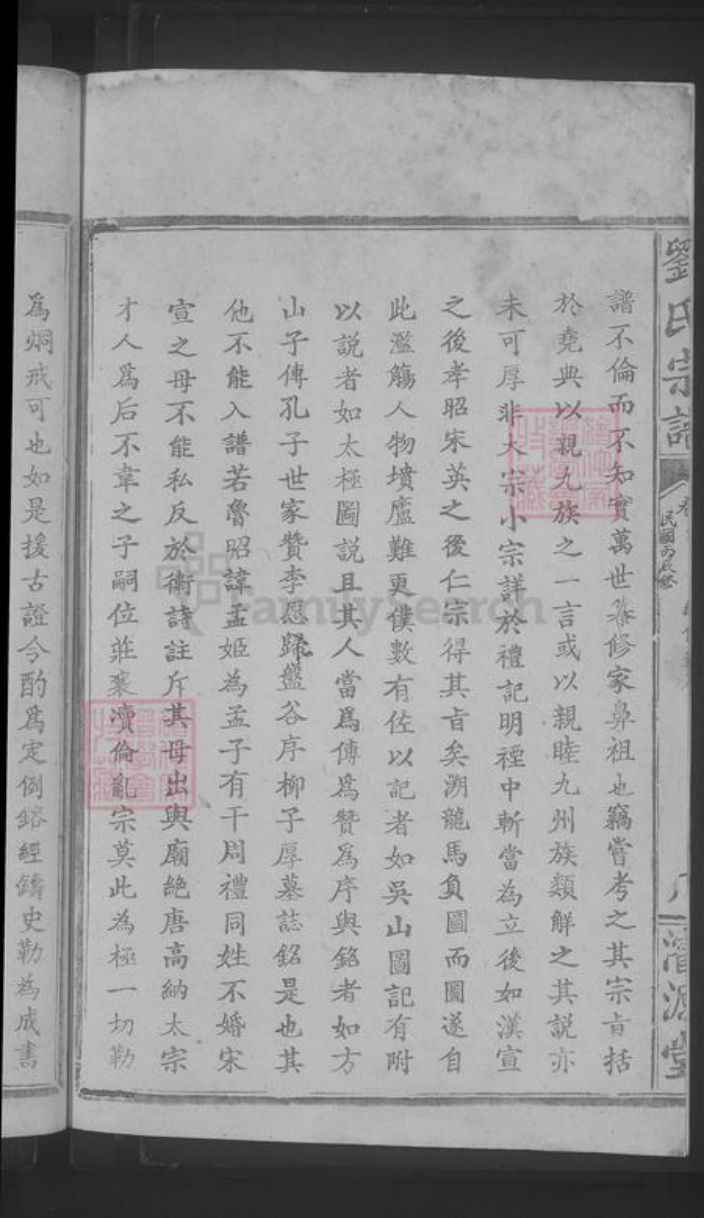 劉氏宗譜
民國丙辰修
濬源堂
譜不倫而不知實萬世纂修家鼻祖也竊嘗考之其宗旨括
於堯典以親九族之一言或以親睦九州族類解之其說亦
未可厚非大宗小宗詳於禮記明禋中斬當為立後如漢宣
之後孝昭宋英之後仁宗得其旨矣溯龍馬負圖而圖遂自
此濫觴人物墳廬難更僕數有佐以記者如吳山圖記有附
以說者如太極圖說且其人當爲傳爲贊爲序與銘者如方
山子傳孔子世家贊李愿歸盤谷序柳子厚墓誌銘是也其
他不能入譜若魯昭諱孟姬為孟子有干周禮同姓不婚宋
宣之母不能私反於衛詩註斥其母出與廟絶唐高納太宗
才人爲后不韋之子嗣位莊襄瀆倫亂宗莫此為極一切勒
爲炯戒可也如是援古證今酌爲定例鎔經鑄史勒為成書
FamilySearch